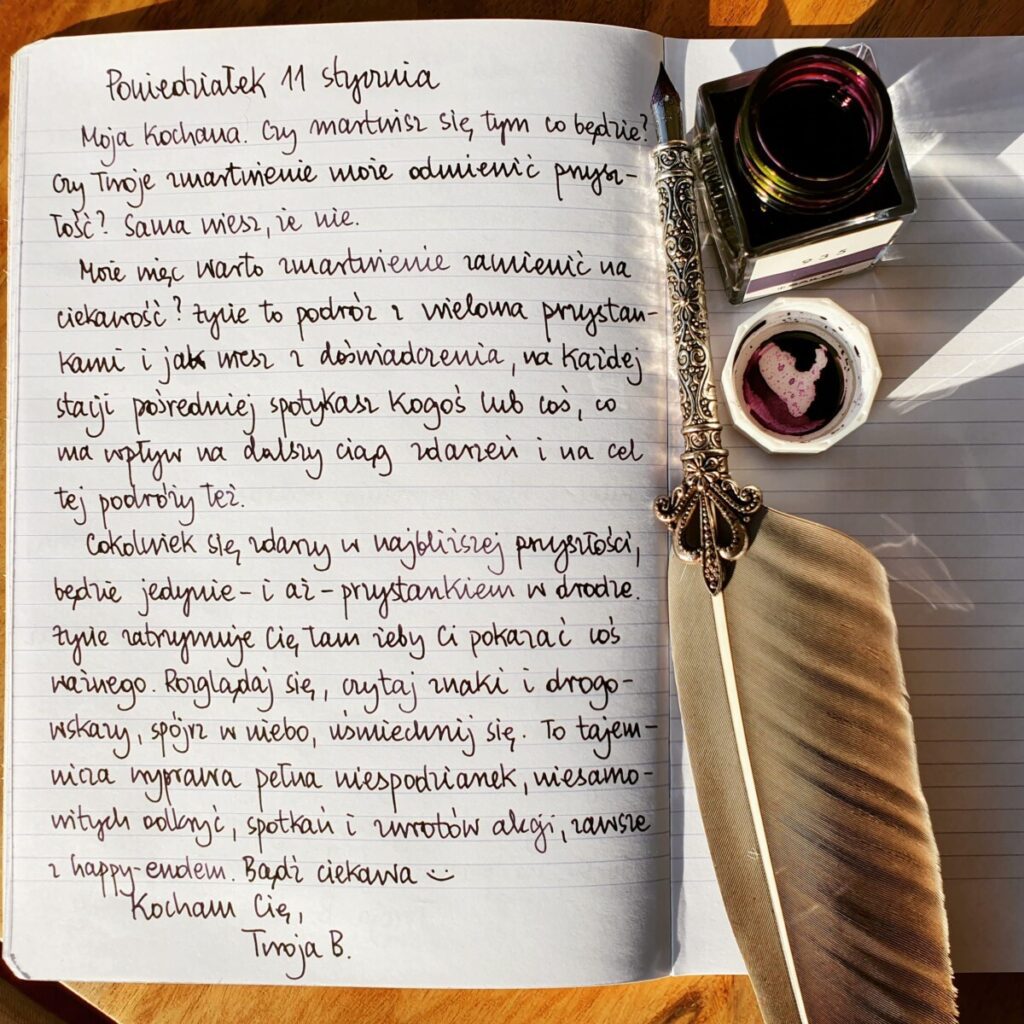 Poniedziałek 11 stycznia
Moja Kochana. Czy martwisz się tym co będzie?
Czy Twoje zmartwienie może odmienić przysz-
łość? Sama wiesz, że nie.
Może więc warto zmartwienie zamienić na
ciekawość? Życie to podróż z wieloma przystan-
kami i jak wiesz z doświadczenia, na każdej
stacji pośredniej spotykasz kogoś lub coś, co
ma wpływ na dalszy ciąg zdarzeń i na cel
tej podróży też.
Cokolwiek się zdarzy w najbliższej przyszłości,
będzie jedynie - i aż - przystankiem w drodze.
Życie zatrzymuje Cię tam żeby Ci pokazać coś
ważnego. Rozglądaj się, czytaj znaki i drogo-
wskazy, spójrz w niebo, uśmiechnij się. To tajem-
nicza wyprawa pełna niespodzianek, niesamo-
witych odkryć, spotkań i zwrotów akcji, zawsze
z happy-endem. Bądź ciekawa
Kocham Cię,
Twoja B.
935